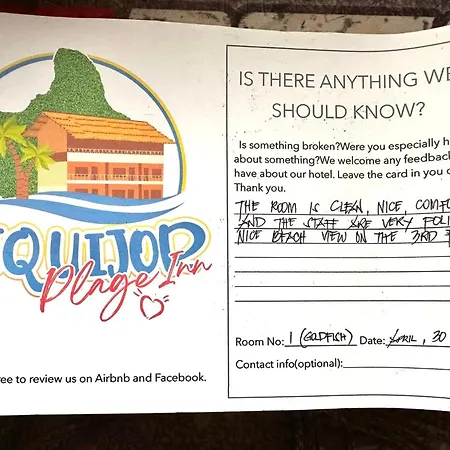 IQUIJOD
Plage Inn
ee to review us on Airbnb and Facebook.
IS THERE ANYTHING WE
SHOULD KNOW?
Is something broken?Were you especially h
about something?We welcome any feedback
have about our hotel. Leave the card in you
Thank you.
THE ROOM IS CLEAN, NICE, COMFO
AND THE STAFF ARE VERY POLI
NICE BEACH VIEW ON THE 3RD
Room No: 1 (GOLDFISH) Date: APRIL, 30
Contact info(optional):